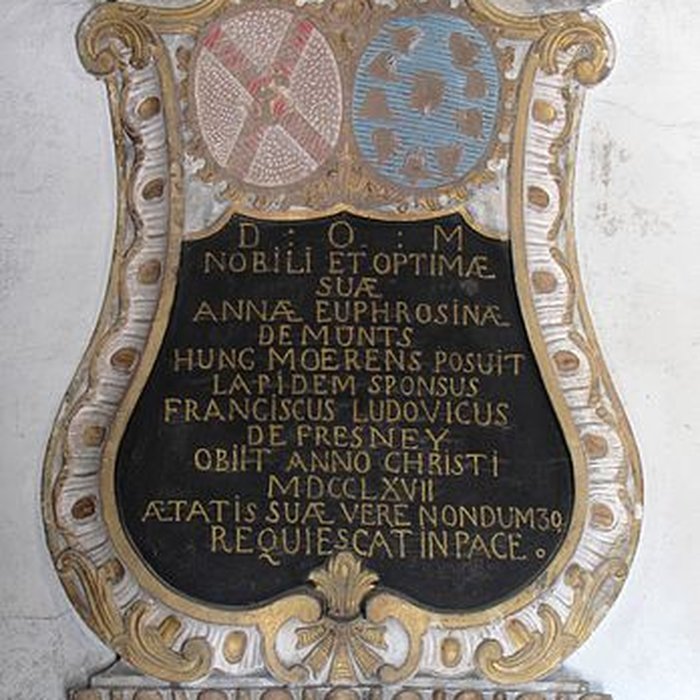 D : O : M
NOBILI ET OPTIMÆ
SUÆ
ANNÆ EUPHROSINÆ
DE MÜNTS
HUNC MOERENS POSUIT
LAPIDEM SPONSUS
FRANCISCUS LUDOVICUS
DE FRESNEY
OBIIT ANNO CHRISTI
MDCCLXVII
ÆTATIS SUÆ VERE NONDUM 30
REQUIESCAT IN PACE.